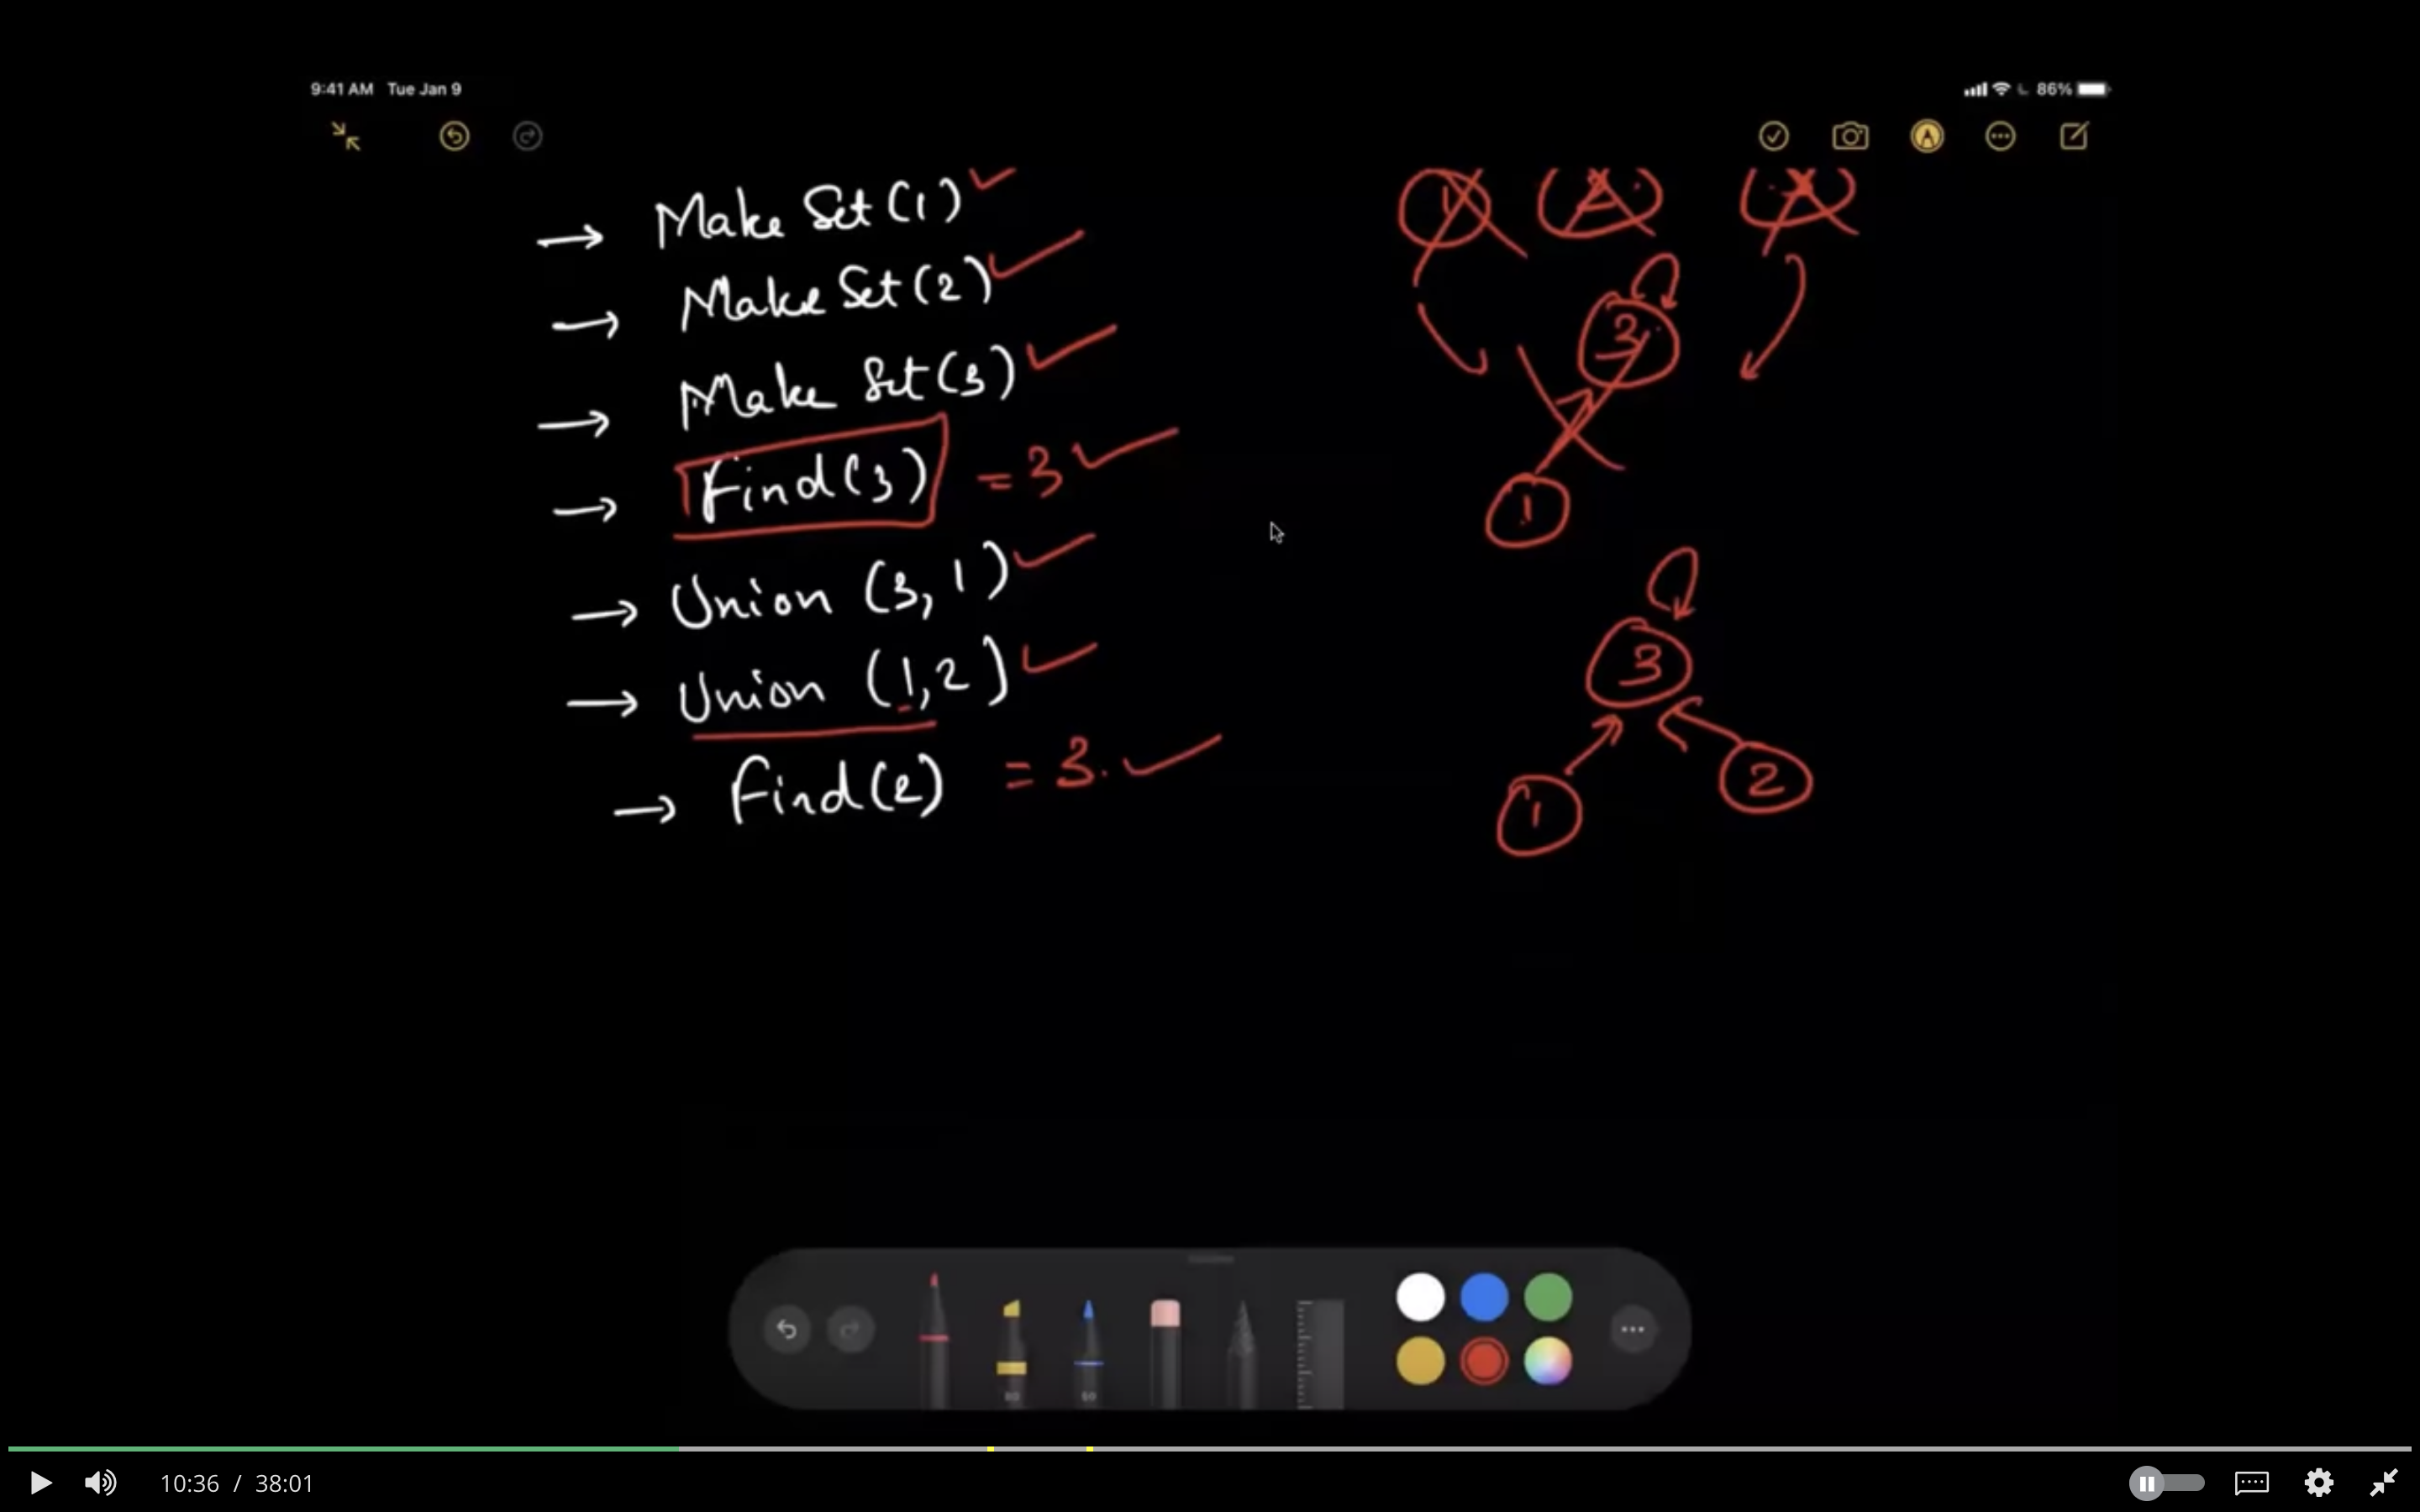 9:41 AM Tue Jan 9
86%
→ Make Set (1) ✓
→ Make Set (2) ✓
→ Make Set (3) ✓
→ Find (3) = 3 ✓
→ Union (3, 1) ✓
→ Union (1, 2) ✓
→ Find (2) = 3. ✓
1 2
3
1
3
1 2
80 50
10:36 / 38:01